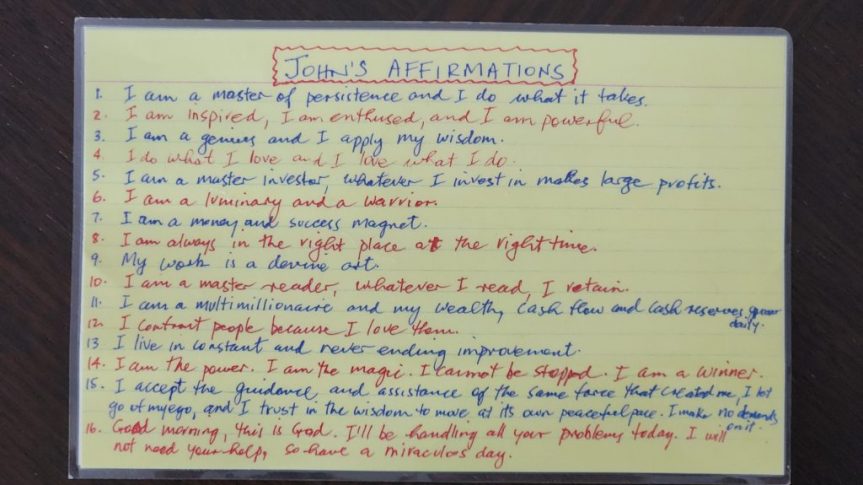 JOHN'S AFFIRMATIONS
1. I am a master of persistence and I do what it takes.
2. I am inspired, I am enthused, and I am powerful.
3. I am a genius and I apply my wisdom.
4 I do what I love and I love what I do.
5. I am a master investor, whatever I invest in makes large profits.
6. I am a luminary and a warrior.
7. I am a money and success magnet.
8. I am always in the right place at the right time.
9. My work is a devine art.
10. I am a master reader, whatever I read, I retain.
11. I am a multimillionaire and my wealth, cash flow and cash reserves grow
daily.
12. I confront people because I love them.
13 I live in constant and never ending improvement.
14. I am the power. I am the magic. I cannot be stopped. I am a winner.
15. I accept the guidance and assistance of the same force that created me, I let
go of my ego, and I trust in the wisdom to move at its own peaceful pace. I make no demands
on it.
16. Good morning, this is God. I'll be handling all your problems today. I will
not need your help, so have a miraculous day.